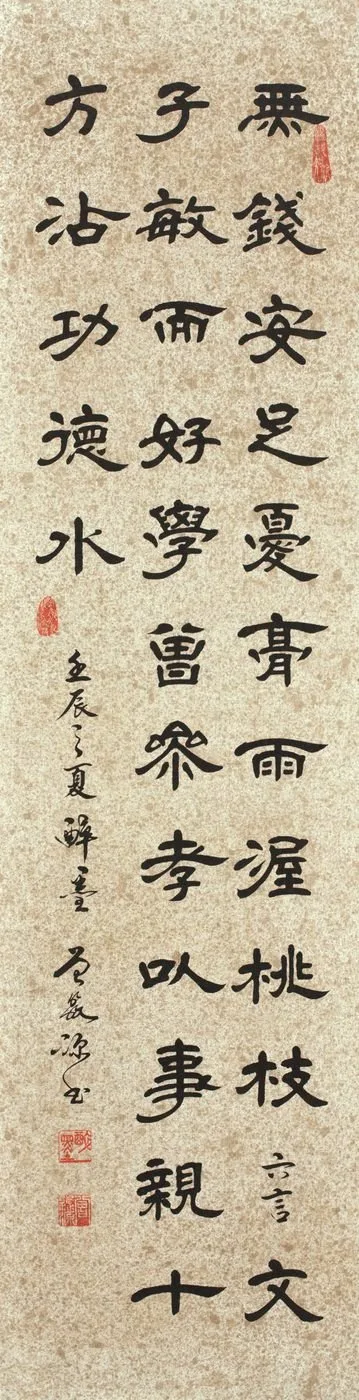 無錢安足憂膏雨渥桃枝六言文
子敏而好學曾參孝以事親十
方沾功德水
壬辰之夏醉墨曾源书